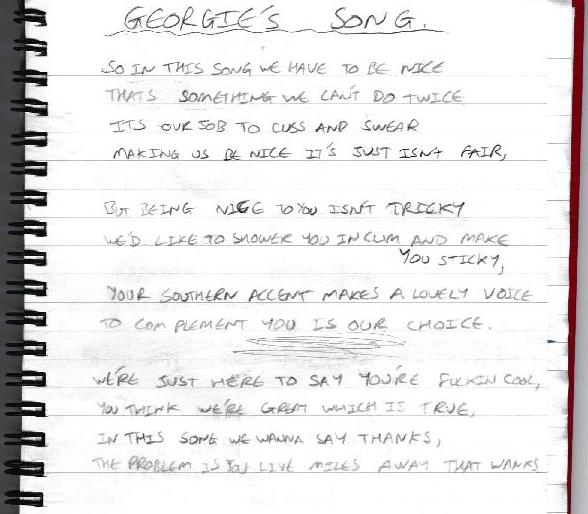 GEORGIE'S SONG.
SO IN THIS SONG WE HAVE TO BE NICE
THATS SOMETHING WE CAN'T DO TWICE
ITS OUR JOB TO CUSS AND SWEAR
MAKING US BE NICE IT'S JUST ISNT FAIR,
BUT BEING NICE TO YOU ISN'T TRICKY
WE'D LIKE TO SHOWER YOU IN CUM AND MAKE
YOU STICKY,
YOUR SOUTHERN ACCENT MAKES A LOVELY VOICE
TO COMPLEMENT YOU IS OUR CHOICE.
WE'RE JUST HERE TO SAY YOU'RE FUCKIN COOL,
YOU THINK WE'RE GREAT WHICH IS TRUE,
IN THIS SONG WE WANNA SAY THANKS,
THE PROBLEM IS YOU LIVE MILES AWAY THAT WANKS